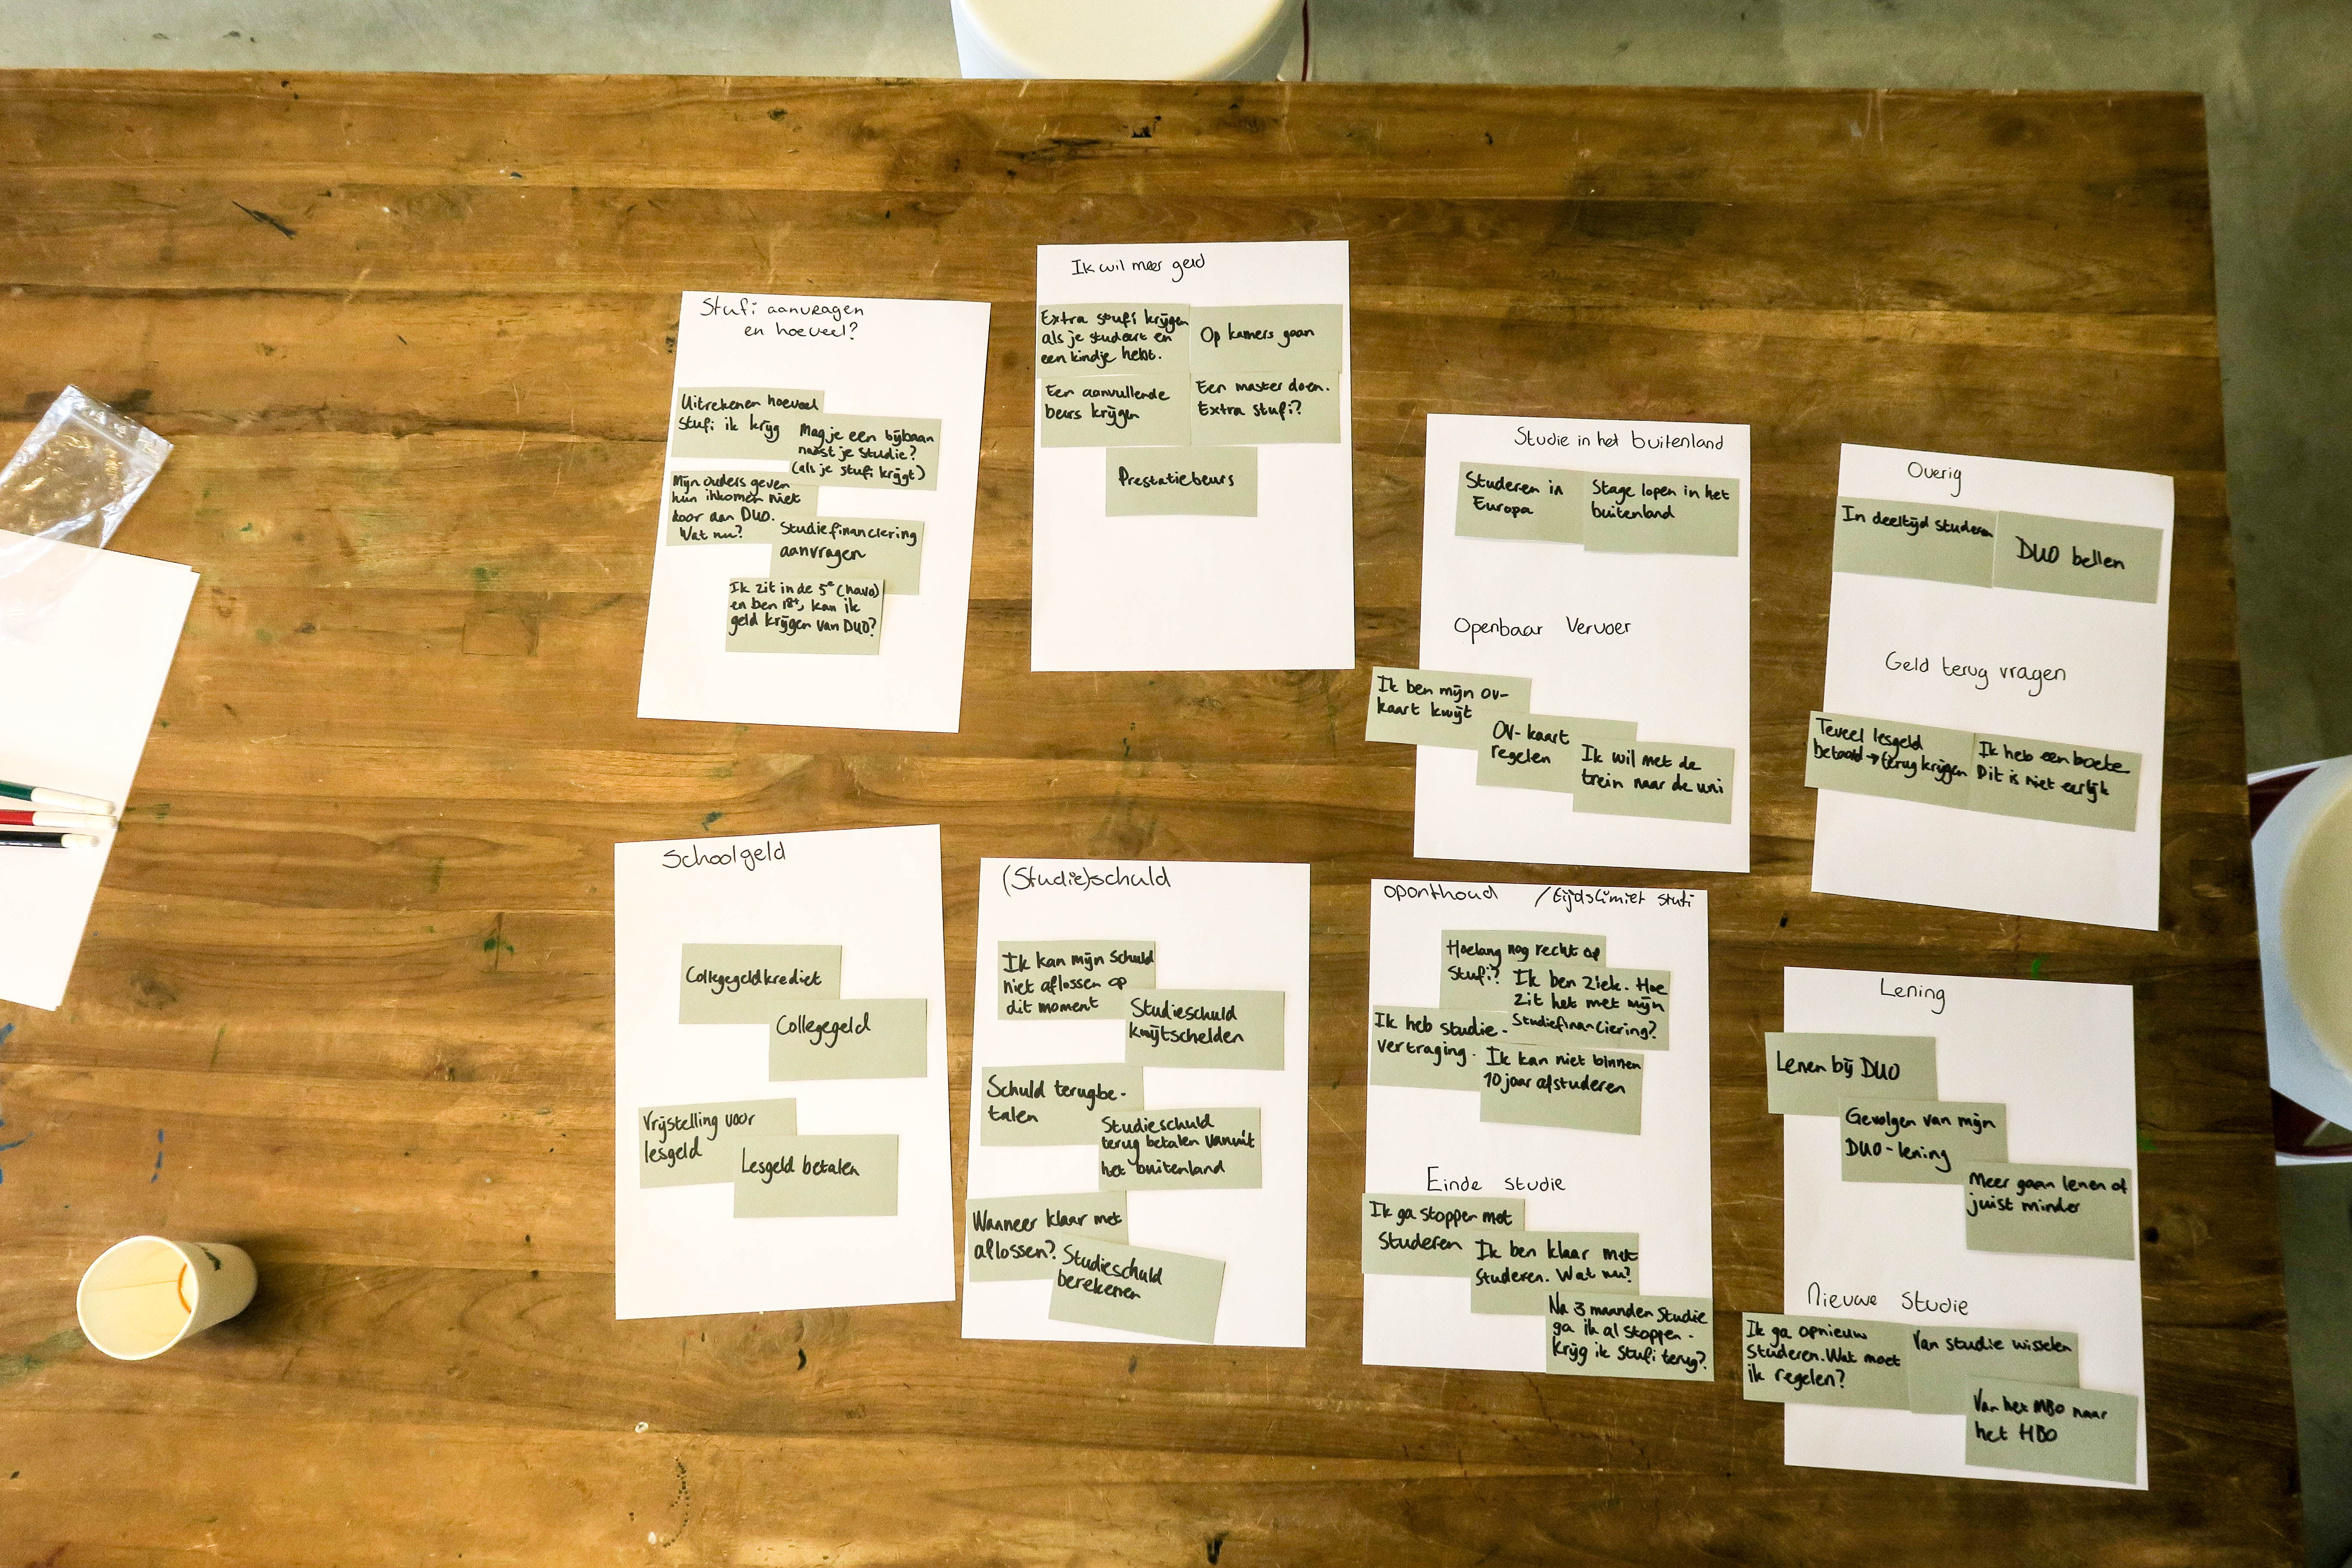 Stufi aanvragen
en hoeveel?
Uitrekenen hoeveel
stufi ik krijg
Mag je een bijbaan
naast je studie?
(als je stufi krijgt)
Mijn ouders geven
hun inkomen niet
door aan DUO.
Wat nu?
Studiefinanciering
aanvragen
Ik zit in de 5e (havo)
en ben 18+, kan ik
geld krijgen van DUO?
Ik wil meer geld
Extra stufi krijgen
als je studeert en
een kindje hebt.
Op kamers gaan
Een aanvullende
beurs krijgen
Een master doen.
Extra stufi?
Prestatiebeurs
Studie in het buitenland
Studeren in
Europa
Stage lopen in het
buitenland
Openbaar Vervoer
Ik ben mijn ov-
kaart kwijt
OV-kaart
regelen
Ik wil met de
trein naar de uni
Overig
In deeltijd studeren
DUO bellen
Geld terug vragen
Teveel lesgeld
betaald → terug krijgen
Ik heb een boete
Dit is niet eerlijk
Schoolgeld
Collegegeldkrediet
Collegegeld
Vrijstelling voor
lesgeld
Lesgeld betalen
(Studie)schuld
Ik kan mijn schuld
niet aflossen op
dit moment
Studieschuld
kwijtschelden
Schuld terugbe-
talen
Studieschuld
terug betalen vanuit
het buitenland
Wanneer klaar met
aflossen?
Studieschuld
berekenen
oponthoud /tijdslimiet stufi
Hoelang nog recht op
stufi?
Ik ben ziek. Hoe
zit het met mijn
Studiefinanciering?
Ik heb studie-
vertraging.
Ik kan niet binnen
10 jaar afstuderen
Einde studie
Ik ga stoppen met
Studeren
Ik ben klaar met
studeren. Wat nu?
Na 3 maanden studie
ga ik al stoppen -
krijg ik stufi terug?
Lening
Lenen bij DUO
Gevolgen van mijn
DUO-lening
Meer gaan lenen of
juist minder
Nieuwe Studie
Ik ga opnieuw
studeren. Wat moet
ik regelen?
Van studie wisselen
Van het MBO naar
het HBO